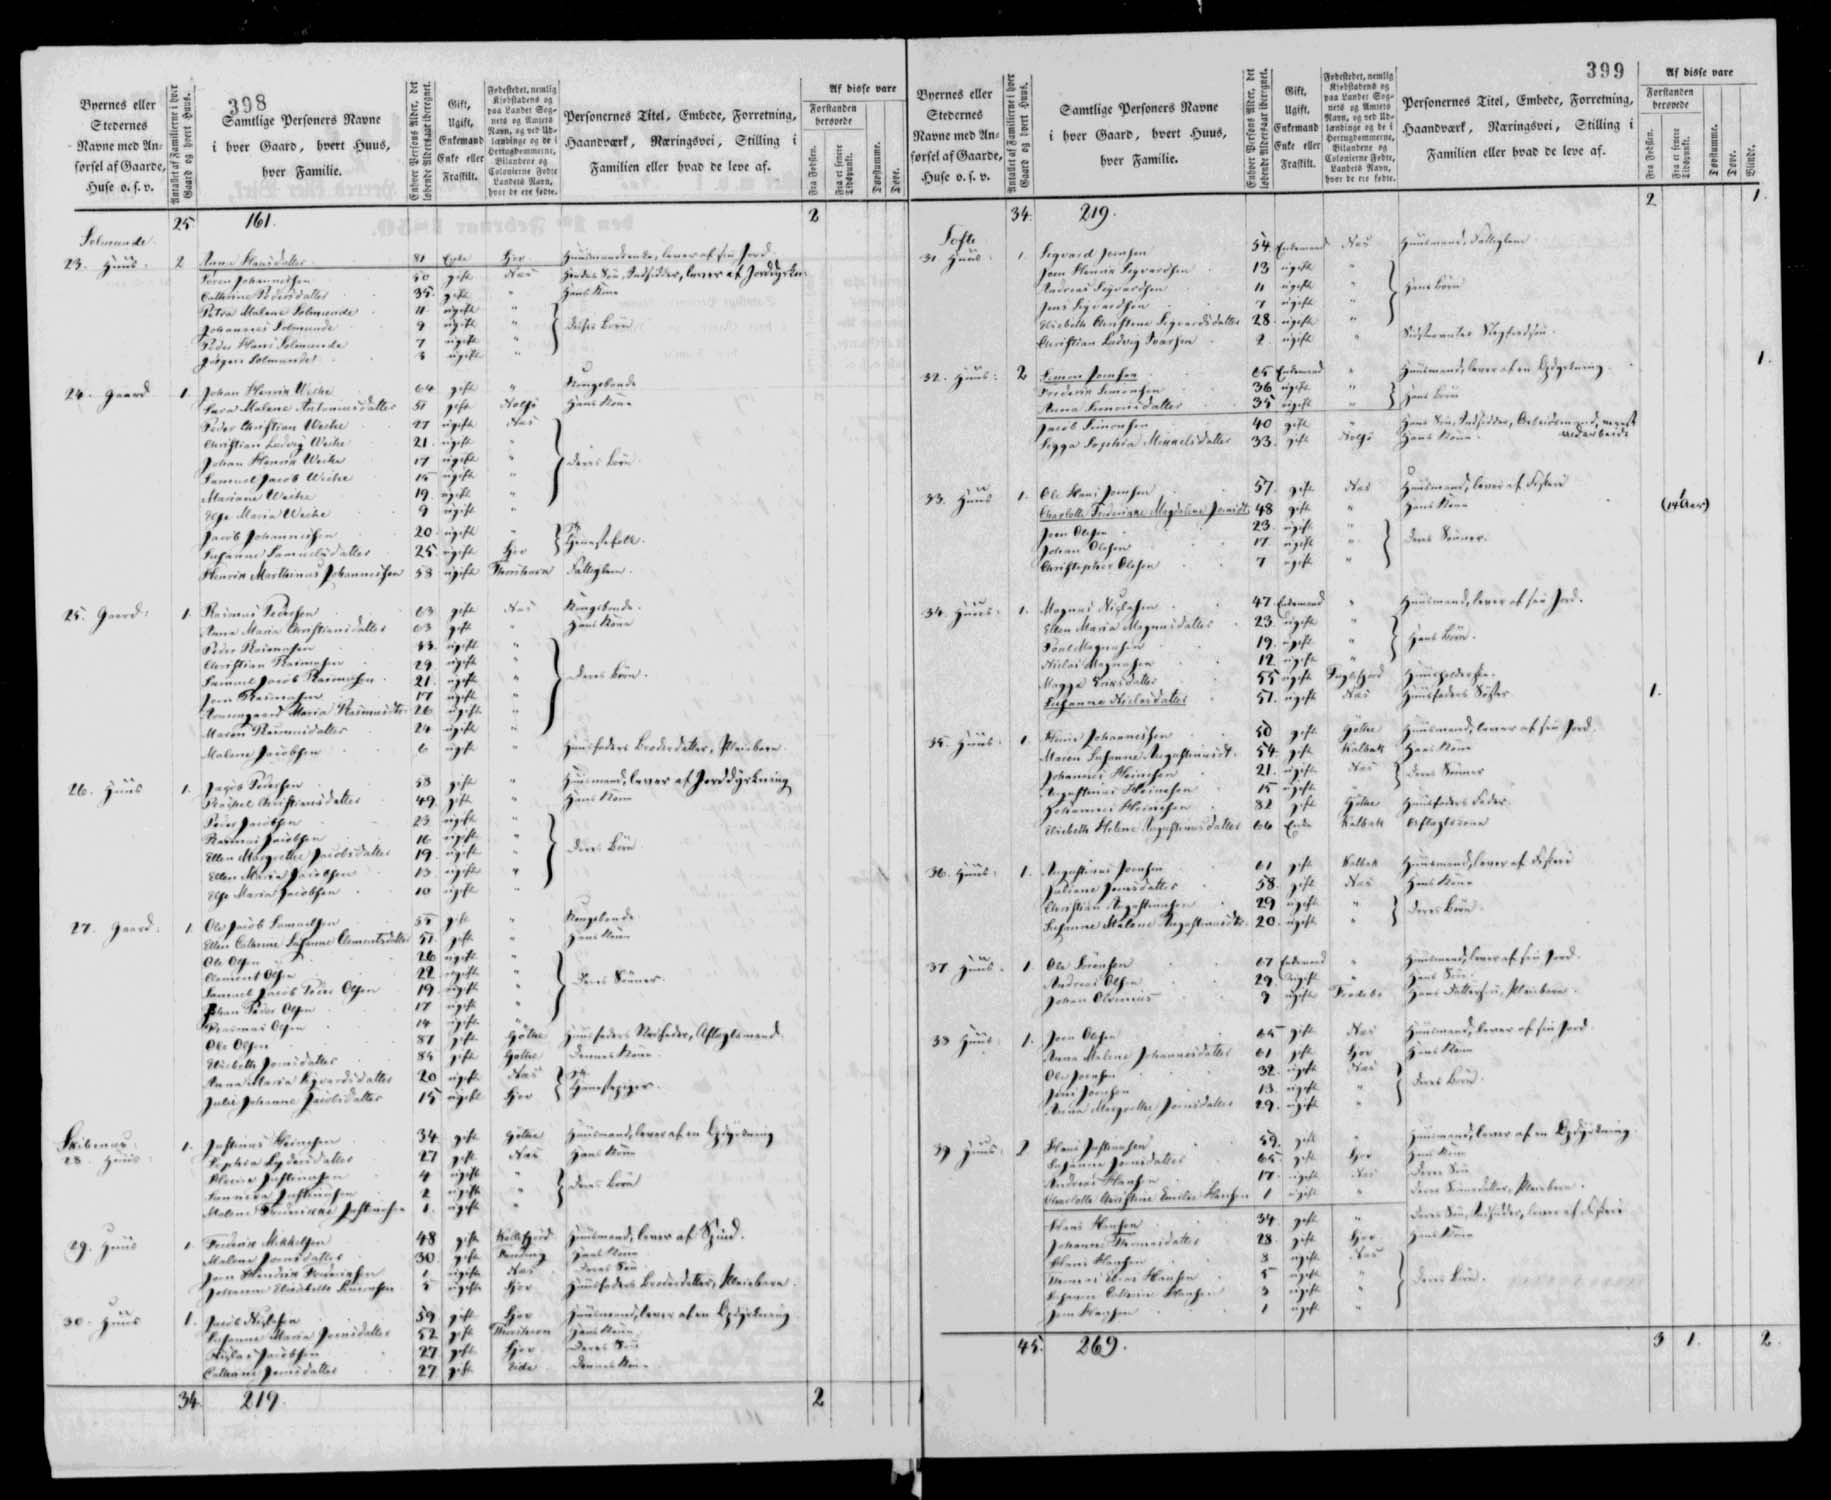 398
Byernes eller
Stedernes
Navne med An-
førsel af Gaarde,
Huse o. s. v.
Antallet af Familierne i hver
Gaard og hvert Huus.
Samtlige Personers Navne
i hver Gaard, hvert Huus,
hver Familie.
Enhver Persons Alder, det
løbende Aldersaar iberegnet.
Gift,
Ugift,
Enkemand
Enke eller
Fraskilt.
Fødestedet, nemlig
Kjøbstadens og
paa Landet Sog-
nets og Amtets
Navn, og ved Ud-
lændinge og de i
Hertugdømmerne,
Bilandene og
Colonierne Fødte
Landets Navn,
hvor de ere fødte.
Personernes Titel, Embede, Forretning,
Haandværk, Næringsvei, Stilling i
Familien eller hvad de leve af.
Af disse vare
Forstanden
berøvede
Fra Fødslen.
Fra et senere
Tidspunkt.
Døvstumme.
Døve.
25 161. 2
Solmunde
23. Huus. 2 Anna Hansdatter 81 Enke Hør Huusmandsenke, lever af sin Jord
Søren Johannesen 50 gift Næs Hendes Søn, Indsidder, lever af Jorddyrkn:
Cathrine Pedersdatter 35 gift " Hans Kone
Petra Malene Solmunde 11 ugift "
Johannes Solmunde 9 ugift " Deres Børn
Peder Hans Solmunde 7 ugift "
Jørgen Solmunde 3 ugift "
24. Gaard 1. Johan Henrik Weihe 64 gift " Kongsbonde
Sara Malene Antoniusdatter 51 gift Nolsø Hans Kone
Peder Christian Weihe 27 ugift Næs
Christian Ludvig Weihe 21 ugift "
Johan Henrik Weihe 17 ugift " Deres Børn.
Samuel Jacob Weihe 15 ugift "
Mariane Weihe 19. ugift "
Else Maria Weihe 9 ugift "
Jacob Johannesen 20 ugift " Tjenestefolk.
Susanne Samuelsdatter 25 ugift Hør
Henrik Marthinus Johannesen 58 ugift Thorshavn Fattiglem.
25. Gaard: 1. Rasmus Pedersen 63 gift Næs Kongsbonde.
Anna Maria Christiansdatter 63 gift " Hans Kone
Peder Rasmusen 33. ugift "
Christian Rasmusen 29. ugift "
Samuel Jacob Rasmusen 21. ugift " Deres Børn.
Joen Rasmusen 17 ugift "
Maria Rasmusdtr 26 ugift "
Maren Rasmusdatter 24 ugift "
Malene Jacobsen 6 ugift " Huusfaders Broderdatter, Pleiebarn.
26. Huus 1. Jacob Pedersen 58 gift " Huusmand, lever af Jorddyrkning
Rachel Christiansdatter 49. gift " Hans Kone
Peder Jacobsen 23 ugift "
Rasmus Jacobsen 16 ugift "
Ellen Margrethe Jacobsdatter 19. ugift " Deres Børn
Ellen Maria Jacobsen 13 ugift "
Else Maria Jacobsen 10 ugift "
27. Gaard: 1. Ole Jacob Samuelsen 55 gift " Kongsbonde
Ellen Cathrine Susanne Clementsdatter 51. gift " Hans Kone
Ole Olsen 26 ugift "
Clement Olsen 22 ugift "
Samuel Jacob Peder Olsen 19. ugift " Deres Sønner.
Johan Peder Olsen 17 ugift "
Rasmus Olsen 14 ugift "
Ole Olsen 87 gift Gøthe Huusfaders Stedfader, Aftægtsmand.
Elisbeth Joensdatter 84 gift Gøthe Dennes Kone.
Anna Maria Sigvardsdatter 20 ugift Næs Tjenestepiger.
Julie Johanne Jacobsdatter 15 ugift Hør
28. Huus: 1. Justinus Heinesen 34. gift Gøthe Huusmand, lever af en Lyngdyrkning
Sophia datter 27 gift Næs Hans Kone
Heine Justinusen 4 ugift "
Justinusen 2 ugift " Deres Børn
Malene Frederikke Justinusen 1. ugift "
29. Huus 1. Frederik Mikkelsen 48 gift Kollefjord Huusmand, lever af Spind.
Malene Joensdatter 30. gift Hans Kone
Joen Hendrik Frederiksen 1 ugift Næs Deres Søn
Johanne Elisabeth 5 ugift Hør Huusfaders Broderdatter, Pleiebarn.
30. Huus 1. Jacob Niclasen 59 gift Hør Huusmand, lever af en
Susanne Maria Joensdatter 52 gift Thorshavn Hans Kone
Niclas Jacobsen 27 gift Hør Deres Søn
Cathrine Joensdatter 27 gift Eide Dennes Kone
34. 219. 2
399
Byernes eller
Stedernes
Navne med An-
førsel af Gaarde,
Huse o. s. v.
Antallet af Familierne i hver
Gaard og hvert Huus.
Samtlige Personers Navne
i hver Gaard, hvert Huus,
hver Familie.
Enhver Persons Alder, det
løbende Aldersaar iberegnet.
Gift,
Ugift,
Enkemand
Enke eller
Fraskilt.
Fødestedet, nemlig
Kjøbstadens og
paa Landet Sog-
nets og Amtets
Navn, og ved Ud-
lændinge og de i
Hertugdømmerne,
Bilandene og
Colonierne Fødte,
Landets Navn,
hvor de ere fødte.
Personernes Titel, Embede, Forretning,
Haandværk, Næringsvei, Stilling i
Familien eller hvad de leve af.
Af disse vare
Forstanden
berøvede
Fra Fødslen.
Fra et senere
Tidspunkt.
Døvstumme.
Døve.
Blinde.
34. 219. 2 1.
Tofte
31. Huus: 1. Sigvard Joensen 54. Enkemand Næs Huusmand, Fattiglem
Joen Henrik Sigvardsen 13 ugift "
Andreas Sigvardsen 11 ugift " Hans Børn
Jens Sigvardsen 7 ugift "
Elisbeth Christene Sigvardsdatter 28 ugift "
Christian Ludvig 2 ugift "
32. Huus: 2 Simon Joensen 65 Enkemand " Huusmand, lever af en 1.
Frederik Simonsen 36 ugift " Hans Børn
Anna Simonsdatter 35 ugift "
Jacob Simonsen 40 gift " Hans Søn, Indsidder, Arbeidsmand,
Sigga Sophia Mikkelsdatter 33. gift Nolsø Hans Kone.
33. Huus 1. Ole Hans Joensen 57. gift Næs Huusmand, lever af Fiskeri
Charlotte Frederikke Magdalene 48 gift " Hans Kone 1 (14 Aar)
Joen Olesen 23. ugift "
Johan Olesen 17. ugift " Deres Sønner.
Christopher Olesen 7 ugift "
34. Huus: 1. Magnus Niclasen 47. Enkemand " Huusmand, lever af sin Jord.
Ellen Maria Magnusdatter 23. ugift "
Poul Magnusen 19. ugift " Hans Børn.
Niclas Magnusen 12 ugift "
Magga datter 55 ugift Fuglefjord Huusholderske.
Susanne Niclasdatter 51. ugift Næs Huusfaders Søster. 1.
35. Huus 1. Heine Johannesen 50 gift Gøthe Huusmand, lever af sin Jord.
Maren Susanne Augustinusdt. 54. gift Kalbak Hans Kone
Johannes Heinesen 21. ugift Næs Deres Sønner
Augustinus Heinesen 15 ugift "
Johannes Heinesen 82 gift Gøthe Huusfaders Fader.
Elisbeth Helene Augustinusdatter 64 Enke Kalbak Aftægtskone
36. Huus: 1. Augustinus Joensen 61 gift Kalbak Huusmand, lever af Fiskeri
Juliane Joensdatter 58. gift Næs Hans Kone
Christian Augustinusen 29 ugift " Deres Børn.
Susanne Malene Augustinusdtr. 20. ugift "
37. Huus 1. Ole Sørensen 67 Enkemand " Huusmand, lever af sin Jord.
Andreas Olsen 29. Ugift " Hans Søn
Johan 9 ugift Hans Dattersøn, Pleiebarn.
38. Huus 1. Joen Olsen 65 gift Næs Huusmand, lever af sin Jord
Anna Malene Johannesdatter 61 gift Hør Hans Kone
Ole Joensen 32. ugift Næs
Jens Joensen 13. ugift " Deres Børn.
Anna Margrethe Joensdatter 29. ugift "
39. Huus 2 Hans Justinusen 59. gift " Huusmand, lever af en
Susanne Joensdatter 65 gift Hør Hans Kone
Andreas Hansen 17. ugift Næs Deres Søn
Charlotte Christine Emilie Hansen 1 ugift " Deres Sønnedatter, Pleiebarn.
Hans Hansen 34. gift " Deres Søn, Indsidder, lever af Fiskeri
Johanne Thomasdatter 28. gift Hør Hans Kone
Hans Hansen 8 ugift Næs
Thomas Hansen 5 ugift " Deres Børn.
Susanne Cathrine Hansen 3 ugift "
Joen Hansen 1 ugift "
45. 269. 3 1. 2.